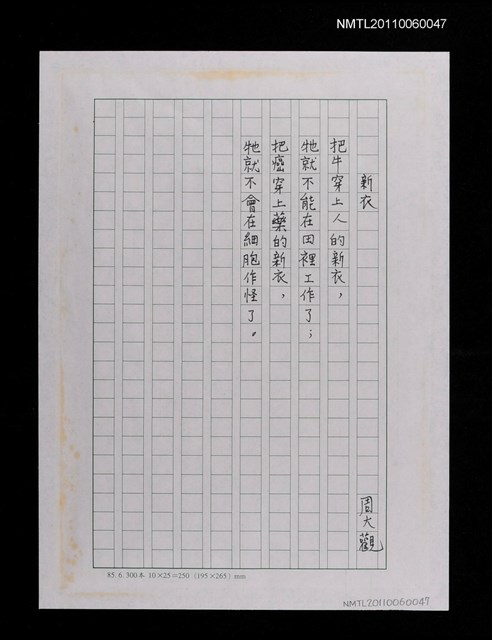 NMTL20110060047
新衣
周大觀
把牛穿上人的新衣，
牠就不能在田裡工作了；
把癌穿上藥的新衣，
牠就不會在細胞作怪了。
85. 6. 300本 10×25=250 (195×265) mm
NMTL20110060047